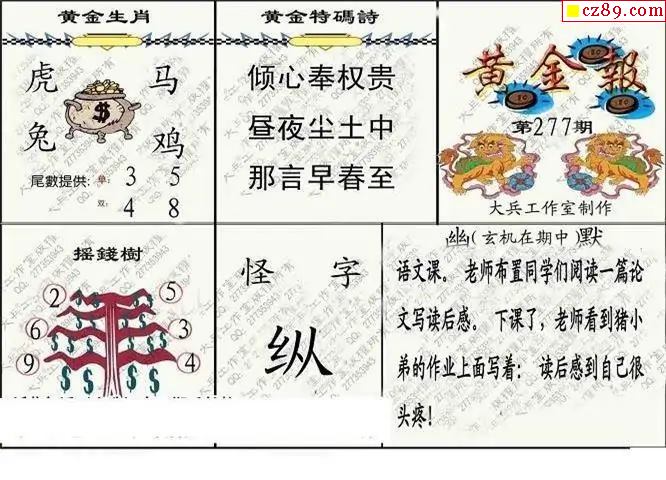 cz89.com
黄金生肖
虎 马
兔 鸡
尾數提供: 单: 3 5
双: 4 8
黄金特碼詩
倾心奉权贵
昼夜尘土中
那言早春至
黄金報
第277期
大兵工作室制作
摇錢樹
2 5
6 3
9 4
怪 字
纵
幽(玄机在期中)默
语文课。 老师布置同学们阅读一篇论
文写读后感。 下课了，老师看到猪小
弟的作业上面写着： 读后感到自己很
头疼！